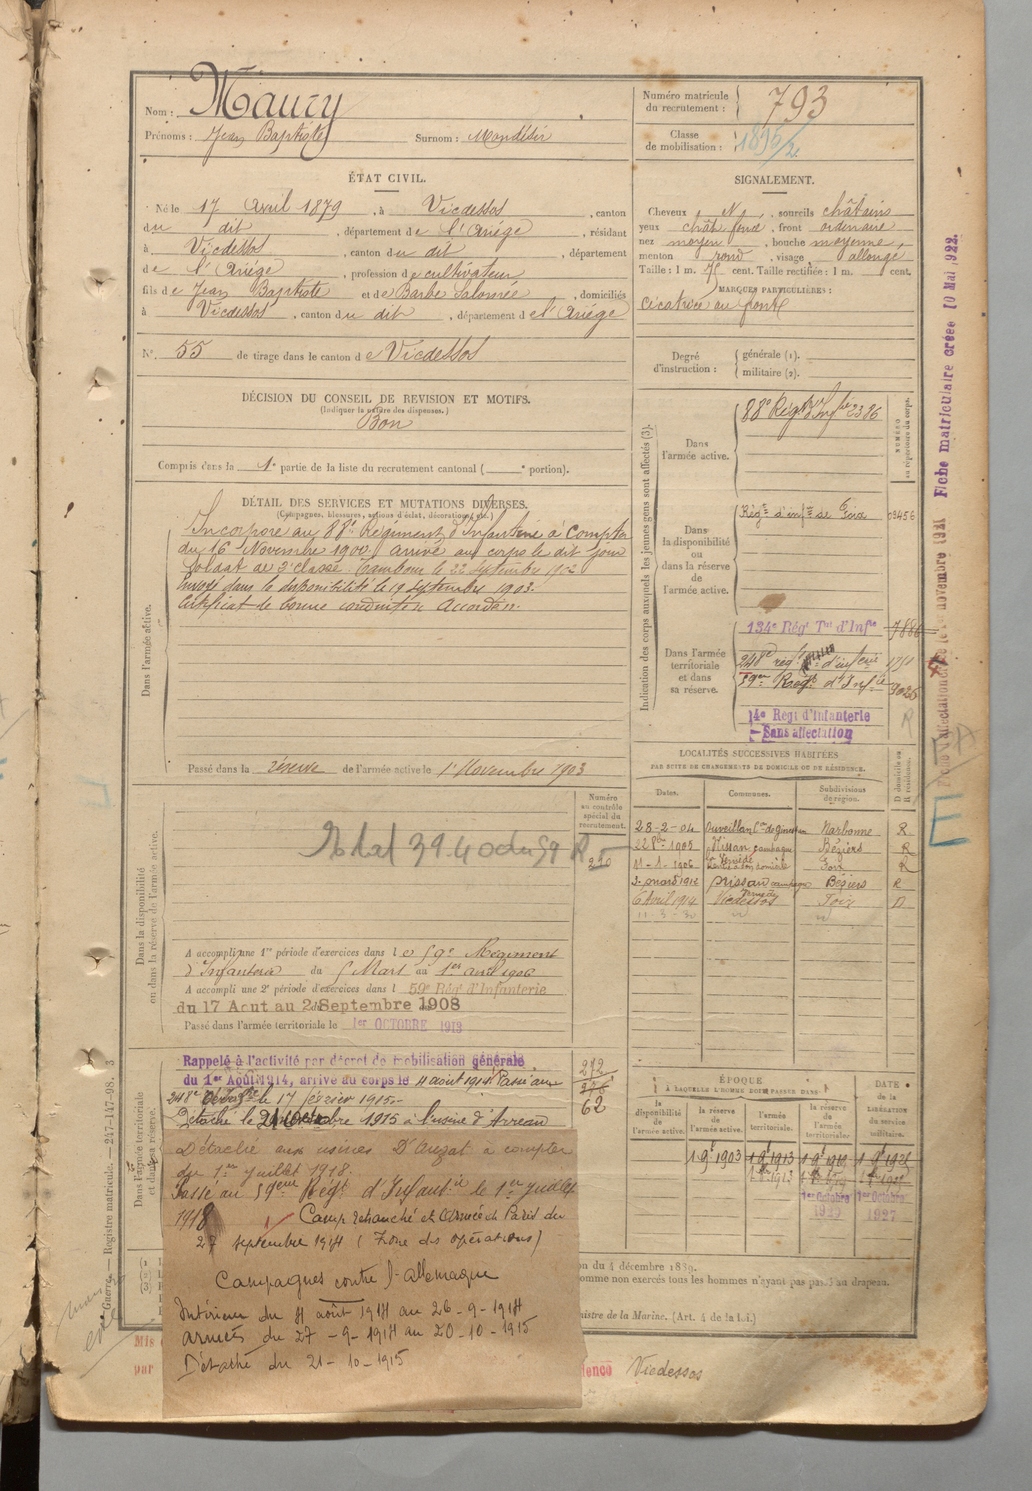 Nom : Maury
Prénoms : Jean Baptiste Surnom : Mondésir
Numéro matricule du recrutement : 793
Classe de mobilisation : 1895/2e
ÉTAT CIVIL.
Né le 17 Avril 1879, à Vicdessos, canton
du dit, département de l'Ariège, résidant
à Vicdessos, canton du dit, département
de l'Ariège, profession de cultivateur
fils de Jean Baptiste et de Barbe Salomée, domiciliés
à Vicdessos, canton du dit, département de l'Ariège
N° 55 de tirage dans le canton de Vicdessos
SIGNALEMENT.
Cheveux N, sourcils châtains
yeux chât foncé, front ordinaire
nez moyen, bouche moyenne,
menton rond, visage allongé
Taille : 1 m. cent. Taille rectifiée : 1 m. cent.
MARQUES PARTICULIÈRES :
cicatrice au front
Degré d'instruction : générale (1).
militaire (2).
DÉCISION DU CONSEIL DE REVISION ET MOTIFS.
(Indiquer la nature des dispenses.)
Bon
Compris dans la 1e partie de la liste du recrutement cantonal ( e portion).
DÉTAIL DES SERVICES ET MUTATIONS DIVERSES.
(Campagnes, blessures, actions d'éclat, décorations, etc.)
Dans l'armée active.
Incorporé au 88e Régiment d'Infanterie à compter
du 16 Novembre 1900, arrivé au corps le dit jour
Soldat de 2e classe. Tambour le 22 septembre 1902
Envoyé dans la disponibilité le 19 septembre 1903.
Certificat de bonne conduite Accordé.
Passé dans la réserve de l'armée active le 1er Novembre 1903
Indication des corps auxquels les jeunes gens sont affectés (3).
NUMÉRO au répertoire du corps.
Dans l'armée active.
88e Régt d'Infrie 2386
Dans la disponibilité ou dans la réserve de l'armée active.
Régt d'infrie de Foix 03456
Dans l'armée territoriale et dans sa réserve.
134e Régt Tal d'Infie 7886
248e régt d'infrie
59me Régt d'Infie
14e Régt d'Infanterie
Sans affectation
LOCALITÉS SUCCESSIVES HABITÉES
PAR SUITE DE CHANGEMENTS DE DOMICILE OU DE RÉSIDENCE.
Dates. Communes. Subdivisions de région. D domicile ou R résidence.
28-2-04 Ouveillan Narbonne R
1905 Nissan campagne Béziers R
11-1-1906 Foix R
3 mars 1912 Nissan campagne Béziers R
6 Avril 1914 Vicdessos Foix D
Numéro au contrôle spécial du recrutement.
Dans la disponibilité ou dans la réserve de l'armée active.
A accompli une 1re période d'exercices dans le 59e Régiment
d'Infanterie du 5 Mars au 1er avril 1906
A accompli une 2e période d'exercices dans l 59e Rég d'Infanterie
du 17 Aout au 2 Septembre 1908
Passé dans l'armée territoriale le 1er OCTOBRE 1913
Dans l'armée territoriale et dans sa réserve.
Rappelé à l'activité par décret de mobilisation générale
du 1er Août 1914, arrivé au corps le 11 août 1914. Passé au
248e d'Infrie le 17 février 1915.
Détaché le 21 Octobre 1915 à l'usine d'Arreau
272
276
62
Détaché aux usines D'Auzat à compter
du 1er juillet 1918.
Passé au 59eme Régt d'Infantie le 1er juillet
1918
Camp retranché et Armée de Paris du
27 septembre 1914 (Zone des opérations)
Campagnes contre l'allemagne
Intérieur du 11 août 1914 au 26-9-1914
Armées du 27-9-1914 au 20-10-1915
Détaché du 21-10-1915
ÉPOQUE
À LAQUELLE L'HOMME DOIT PASSER DANS
la disponibilité de l'armée active. la réserve de l'armée active. l'armée territoriale. la réserve de l'armée territoriale.
DATE de la LIBÉRATION du service militaire.
1 9e 1903 1 9e 1913
1er Octobre 1920
1er Octobre 1927
Vicdessos
Fiche matriculaire créée 10 Mai 1922.
Guerre. — Registre matricule. — 247-147-98.